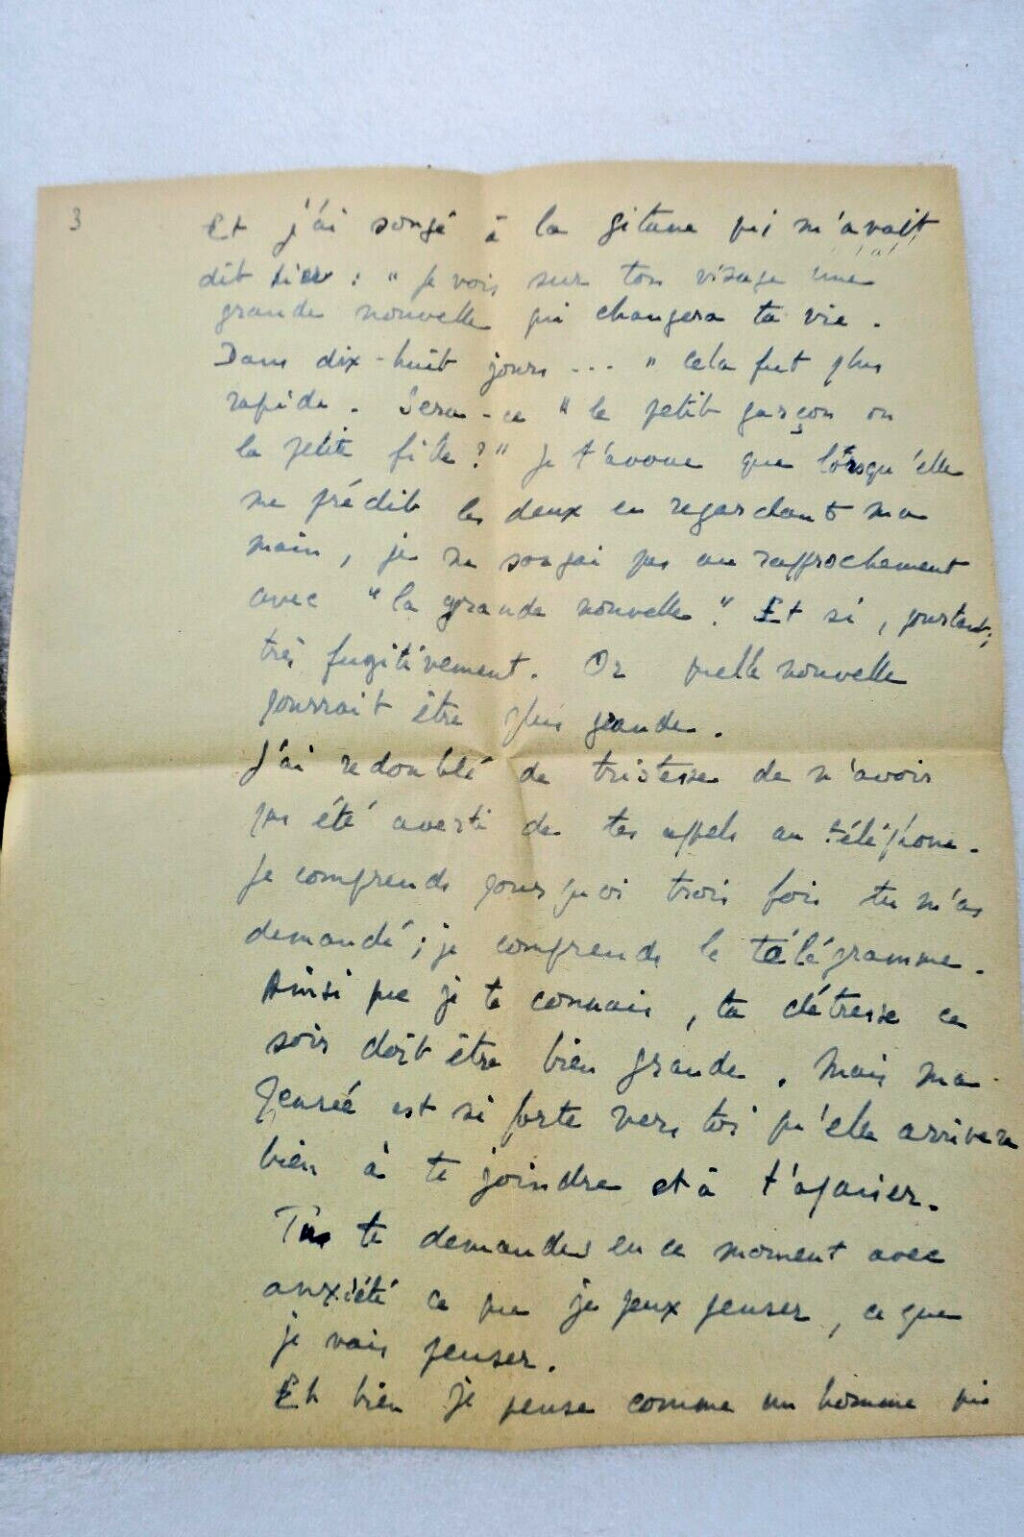 3
Et j'ai songé à la gitane qui m'avait
dit hier : " Je vois sur ton visage une
grande nouvelle qui changera ta vie .
Dans dix-huit jours ... " Cela fut plus
rapide . Sera-ce " le petit garçon ou
la petite fille ? " Je t'avoue que lorsqu'elle
me prédit les deux en regardant ma
main , je ne songai pas au rapprochement
avec " la grande nouvelle " . Et si , pourtant ,
très fugitivement . Or quelle nouvelle
pourrait être plus grande .
J'ai redoublé de tristesse de n'avoir
pas été averti de tes appels au téléphone .
Je comprends pourquoi trois fois tu m'as
demandé ; je comprends le télégramme .
Ainsi que je te connais , ta détresse ce
soir doit être bien grande . Mais ma
pensée est si forte vers toi qu'elle arrivera
bien à te joindre et à t'apaiser .
Tu te demandes en ce moment avec
anxiété ce que je peux penser , ce que
je vais penser .
Eh bien je pense comme un homme qui